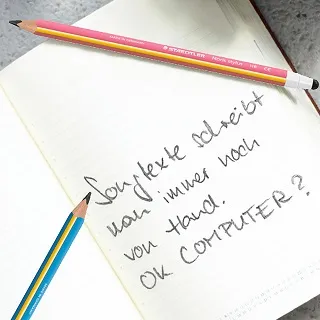 STAEDTLER
Songtexte schreibt
man immer noch
von Hand.
OK COMPUTER?